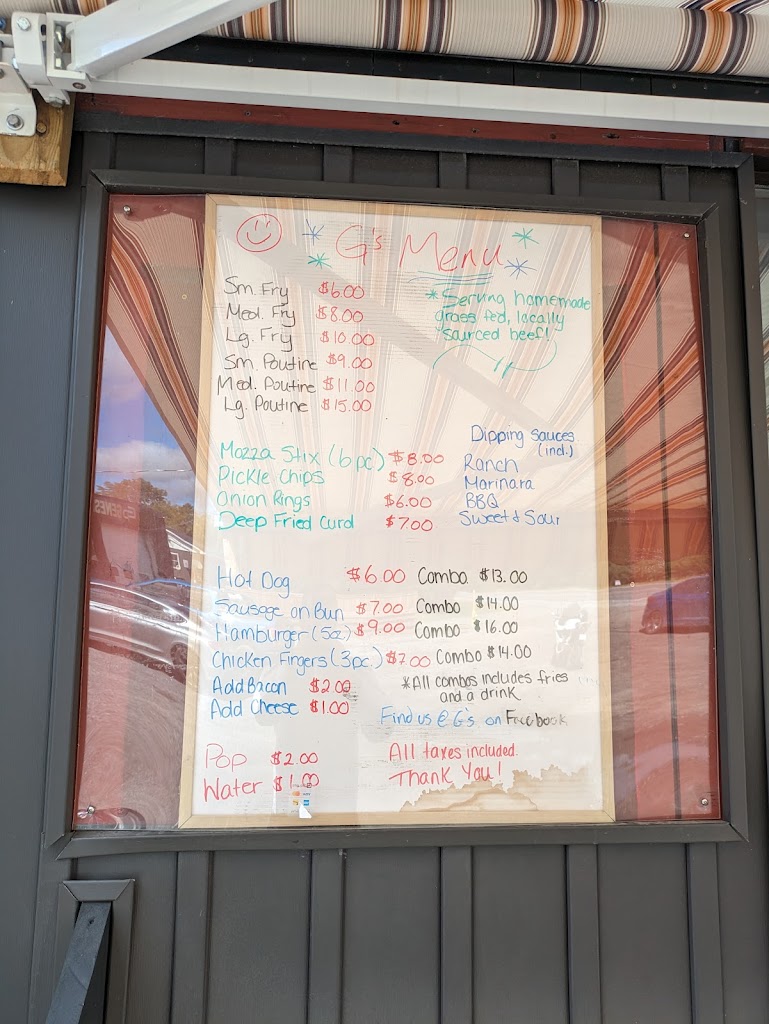 G's Menu
Sm. Fry $6.00
Med. Fry $8.00
Lg. Fry $10.00
Sm. Poutine $9.00
Med. Poutine $11.00
Lg. Poutine $15.00
*Serving homemade
grass fed, locally
sourced beef!
Mozza Stix (6pc) $8.00
Pickle Chips $8.00
Onion Rings $6.00
Deep Fried Curd $7.00
Dipping Sauces
(incl.)
Ranch
Marinara
BBQ
Sweet & Sour
Hot Dog $6.00 Combo $13.00
Sausage on Bun $7.00 Combo $14.00
Hamburger (5oz) $9.00 Combo $16.00
Chicken Fingers (3pc.) $7.00 Combo $14.00
Add Bacon $2.00
Add Cheese $1.00
*All combos includes fries
and a drink
Find us @ G's on Facebook
Pop $2.00
Water $1.00
All taxes included.
Thank You!